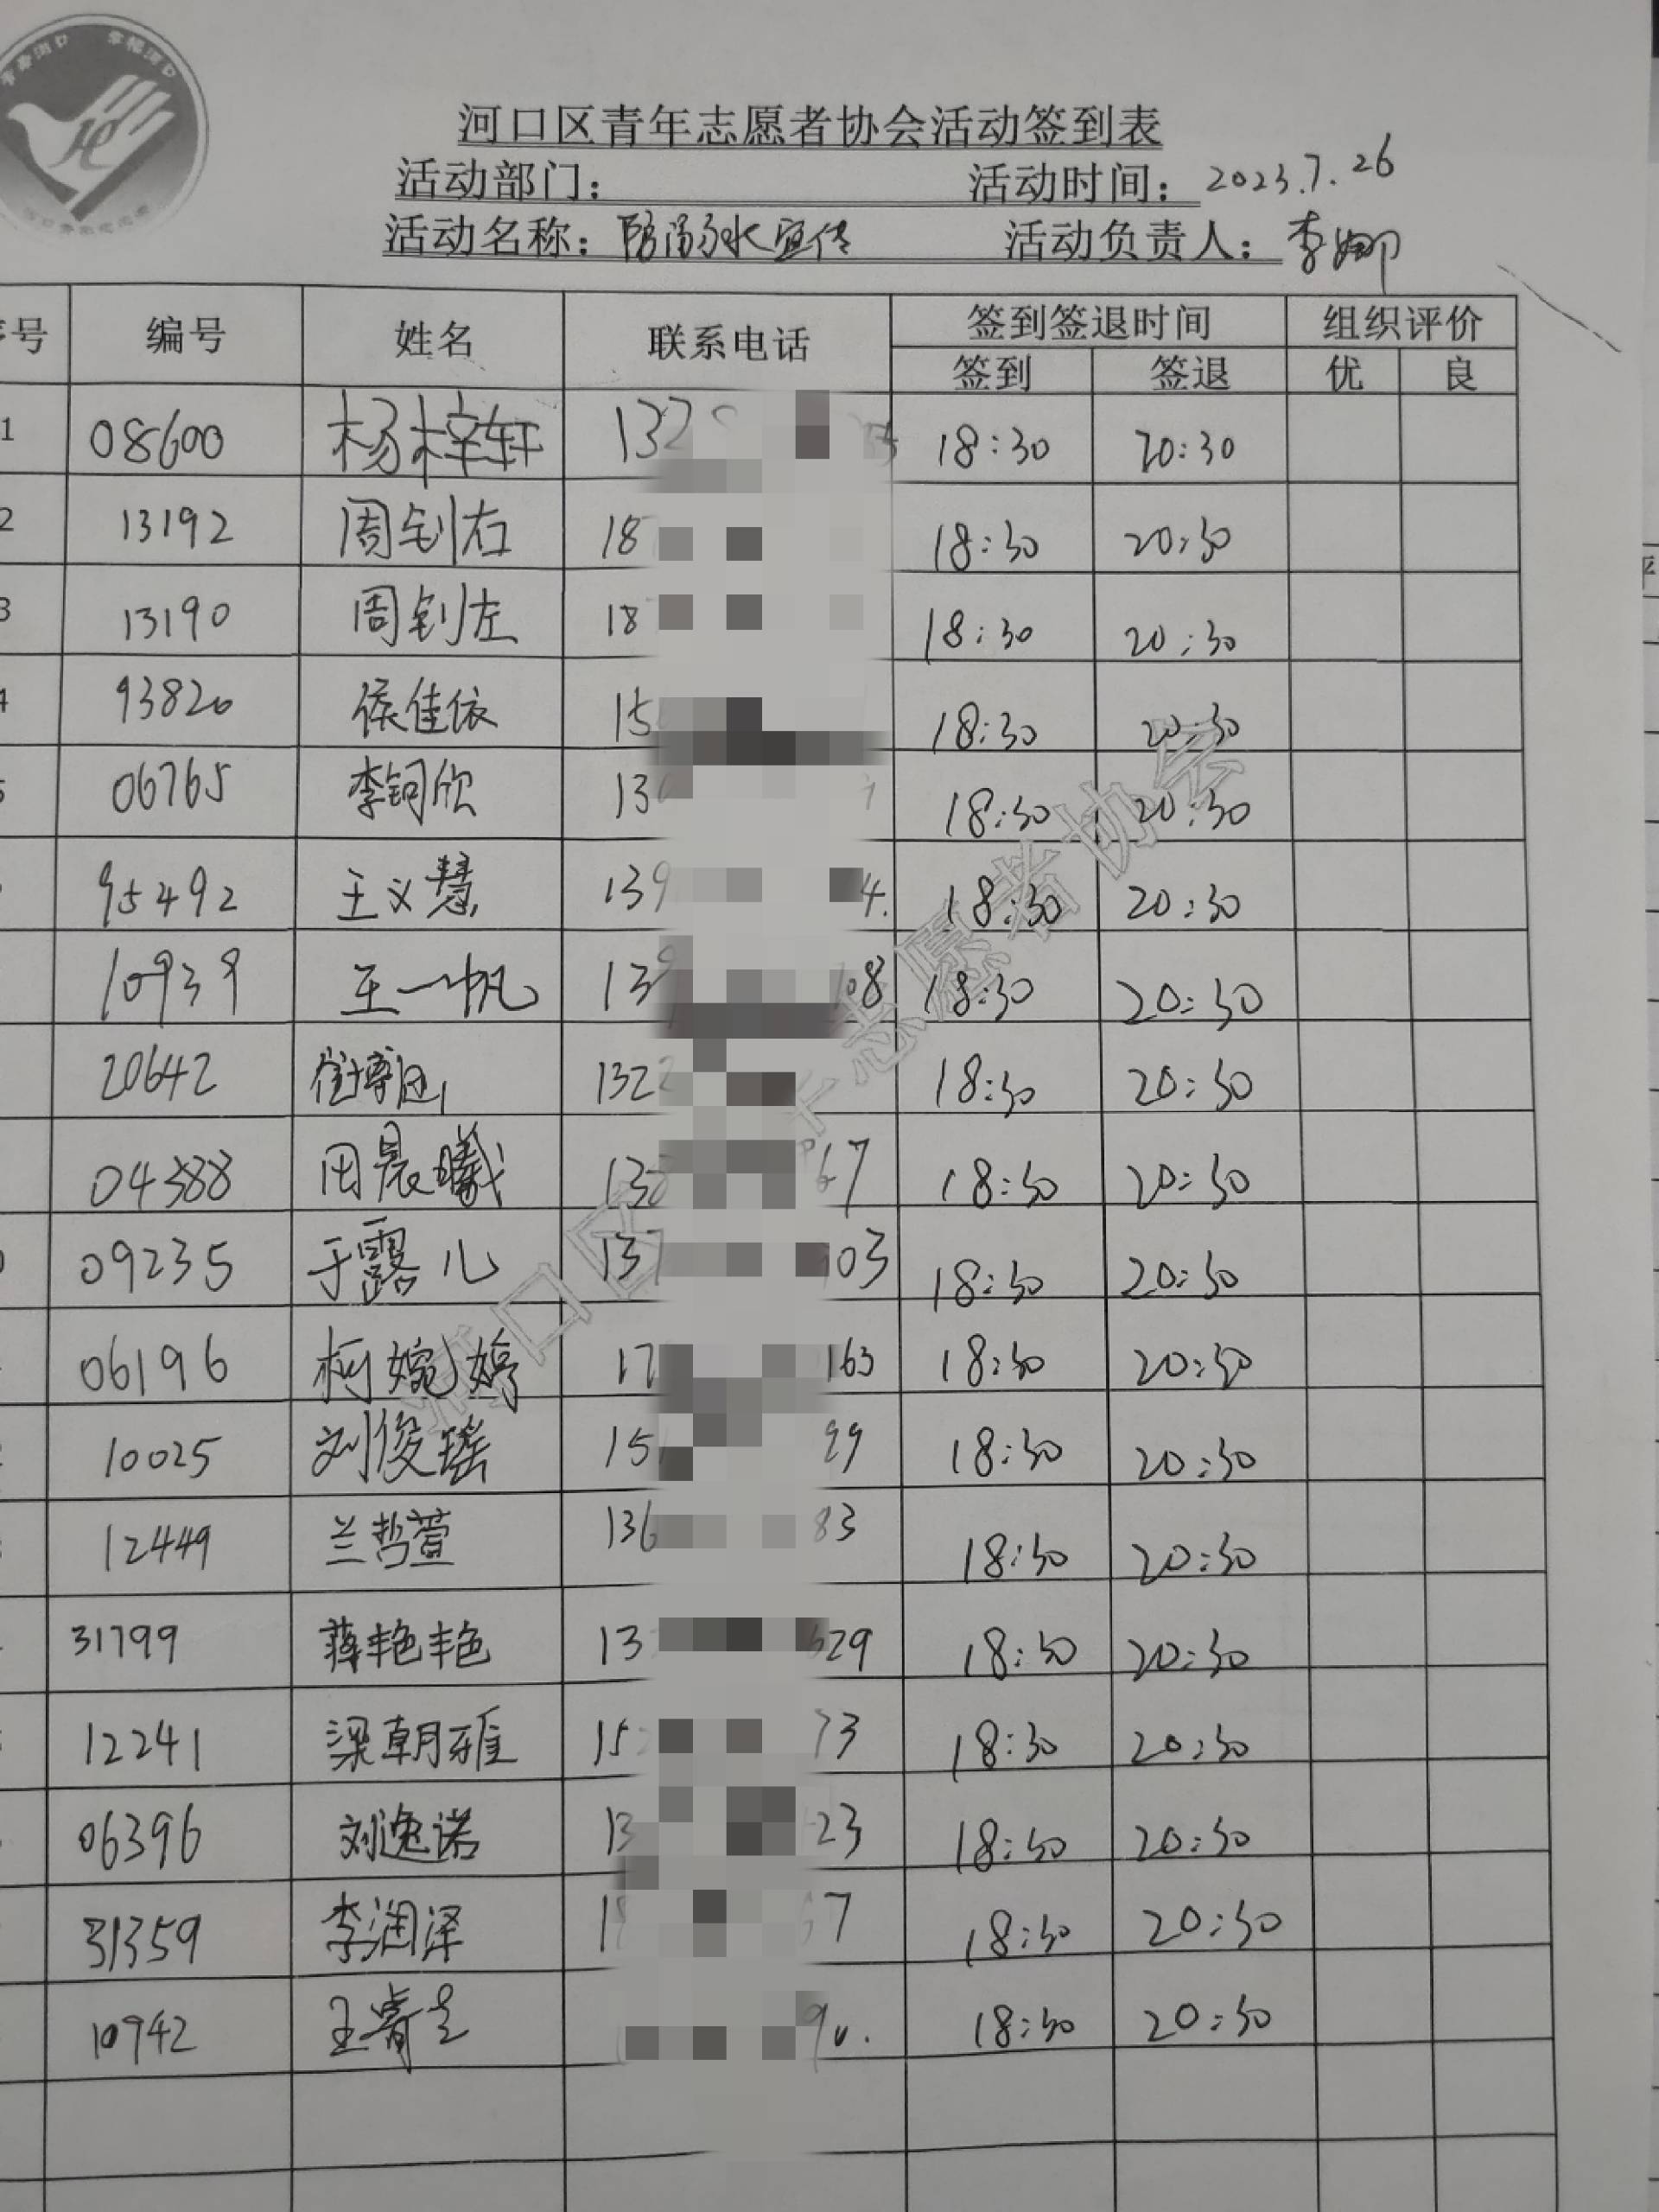 河口区青年志愿者协会活动签到表
活动部门： 活动时间：2023.7.26
活动名称：防溺水宣传 活动负责人：李娜
序号 编号 姓名 联系电话 签到签退时间 组织评价
签到 签退 优 良
1 08600 杨梓轩 132 18:30 20:30
2 13192 周钊右 18 18:30 20:30
3 13190 周钊左 18 18:30 20:30
4 93820 侯佳依 15 18:30 20:30
5 06765 李钶欣 13 18:30 20:30
95492 王义慧 139 4. 18:30 20:30
10939 王一帆 139 08 18:30 20:30
20642 132 18:30 20:30
04388 田晨曦 13 67 18:30 20:30
09235 于露儿 137 03 18:30 20:30
06196 柯婉婷 17 163 18:30 20:30
10025 刘俊瑶 15 99 18:30 20:30
12449 兰哲萱 136 83 18:30 20:30
31799 蒋艳艳 13 529 18:30 20:30
12241 梁朝雅 15 73 18:30 20:30
06396 刘逸诺 13 23 18:30 20:30
31359 李润泽 1 67 18:30 20:30
10942 王 9 18:30 20:30
河口区青年志愿者协会